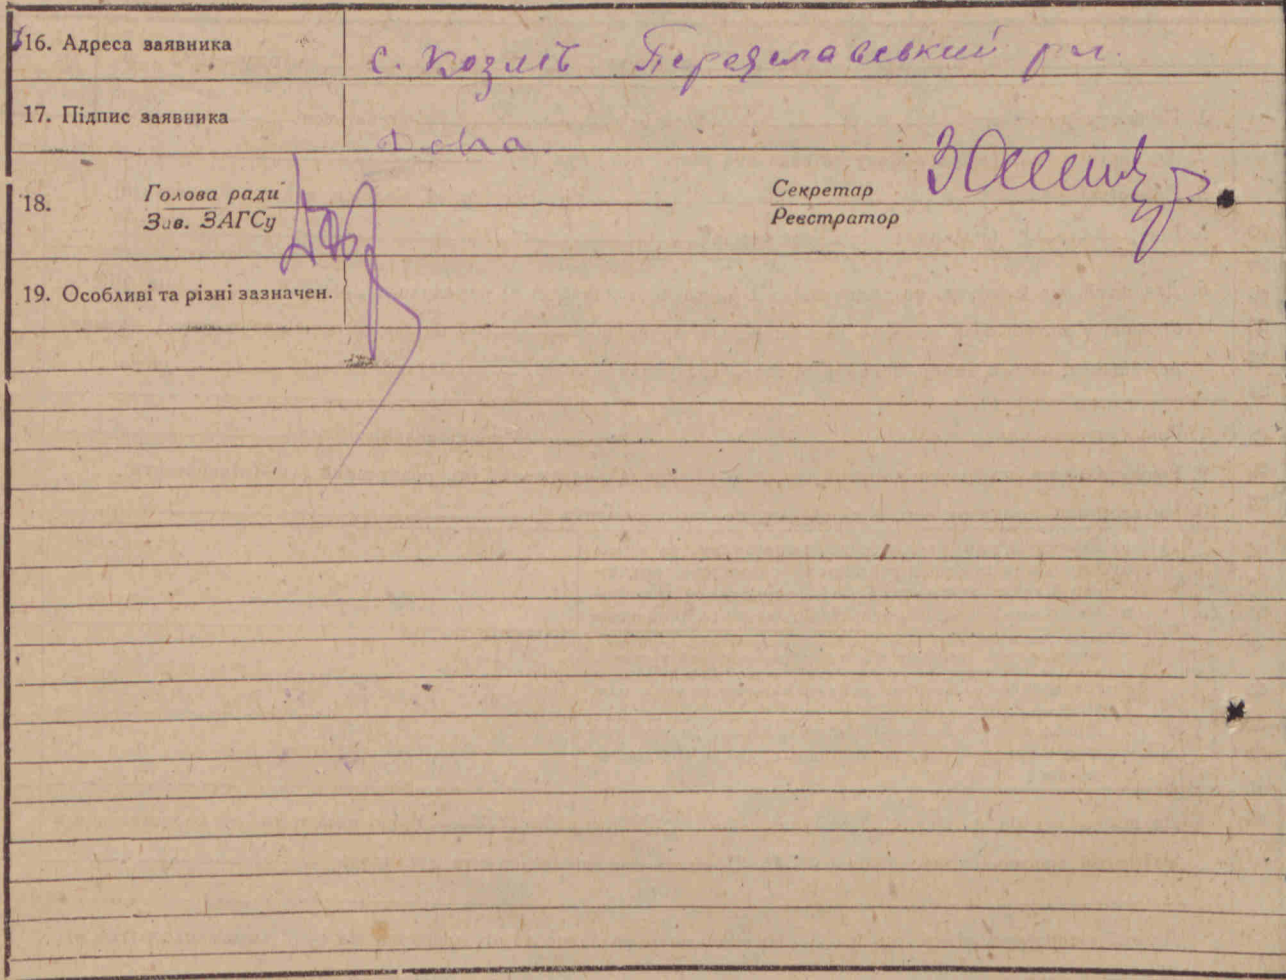 16. Адреса заявника с. Козлів Переяславський рн.
17. Підпис заявника
18. Голова ради Секретар
Зав. ЗАГСу Реєстратор
19. Особливі та різні зазначен.